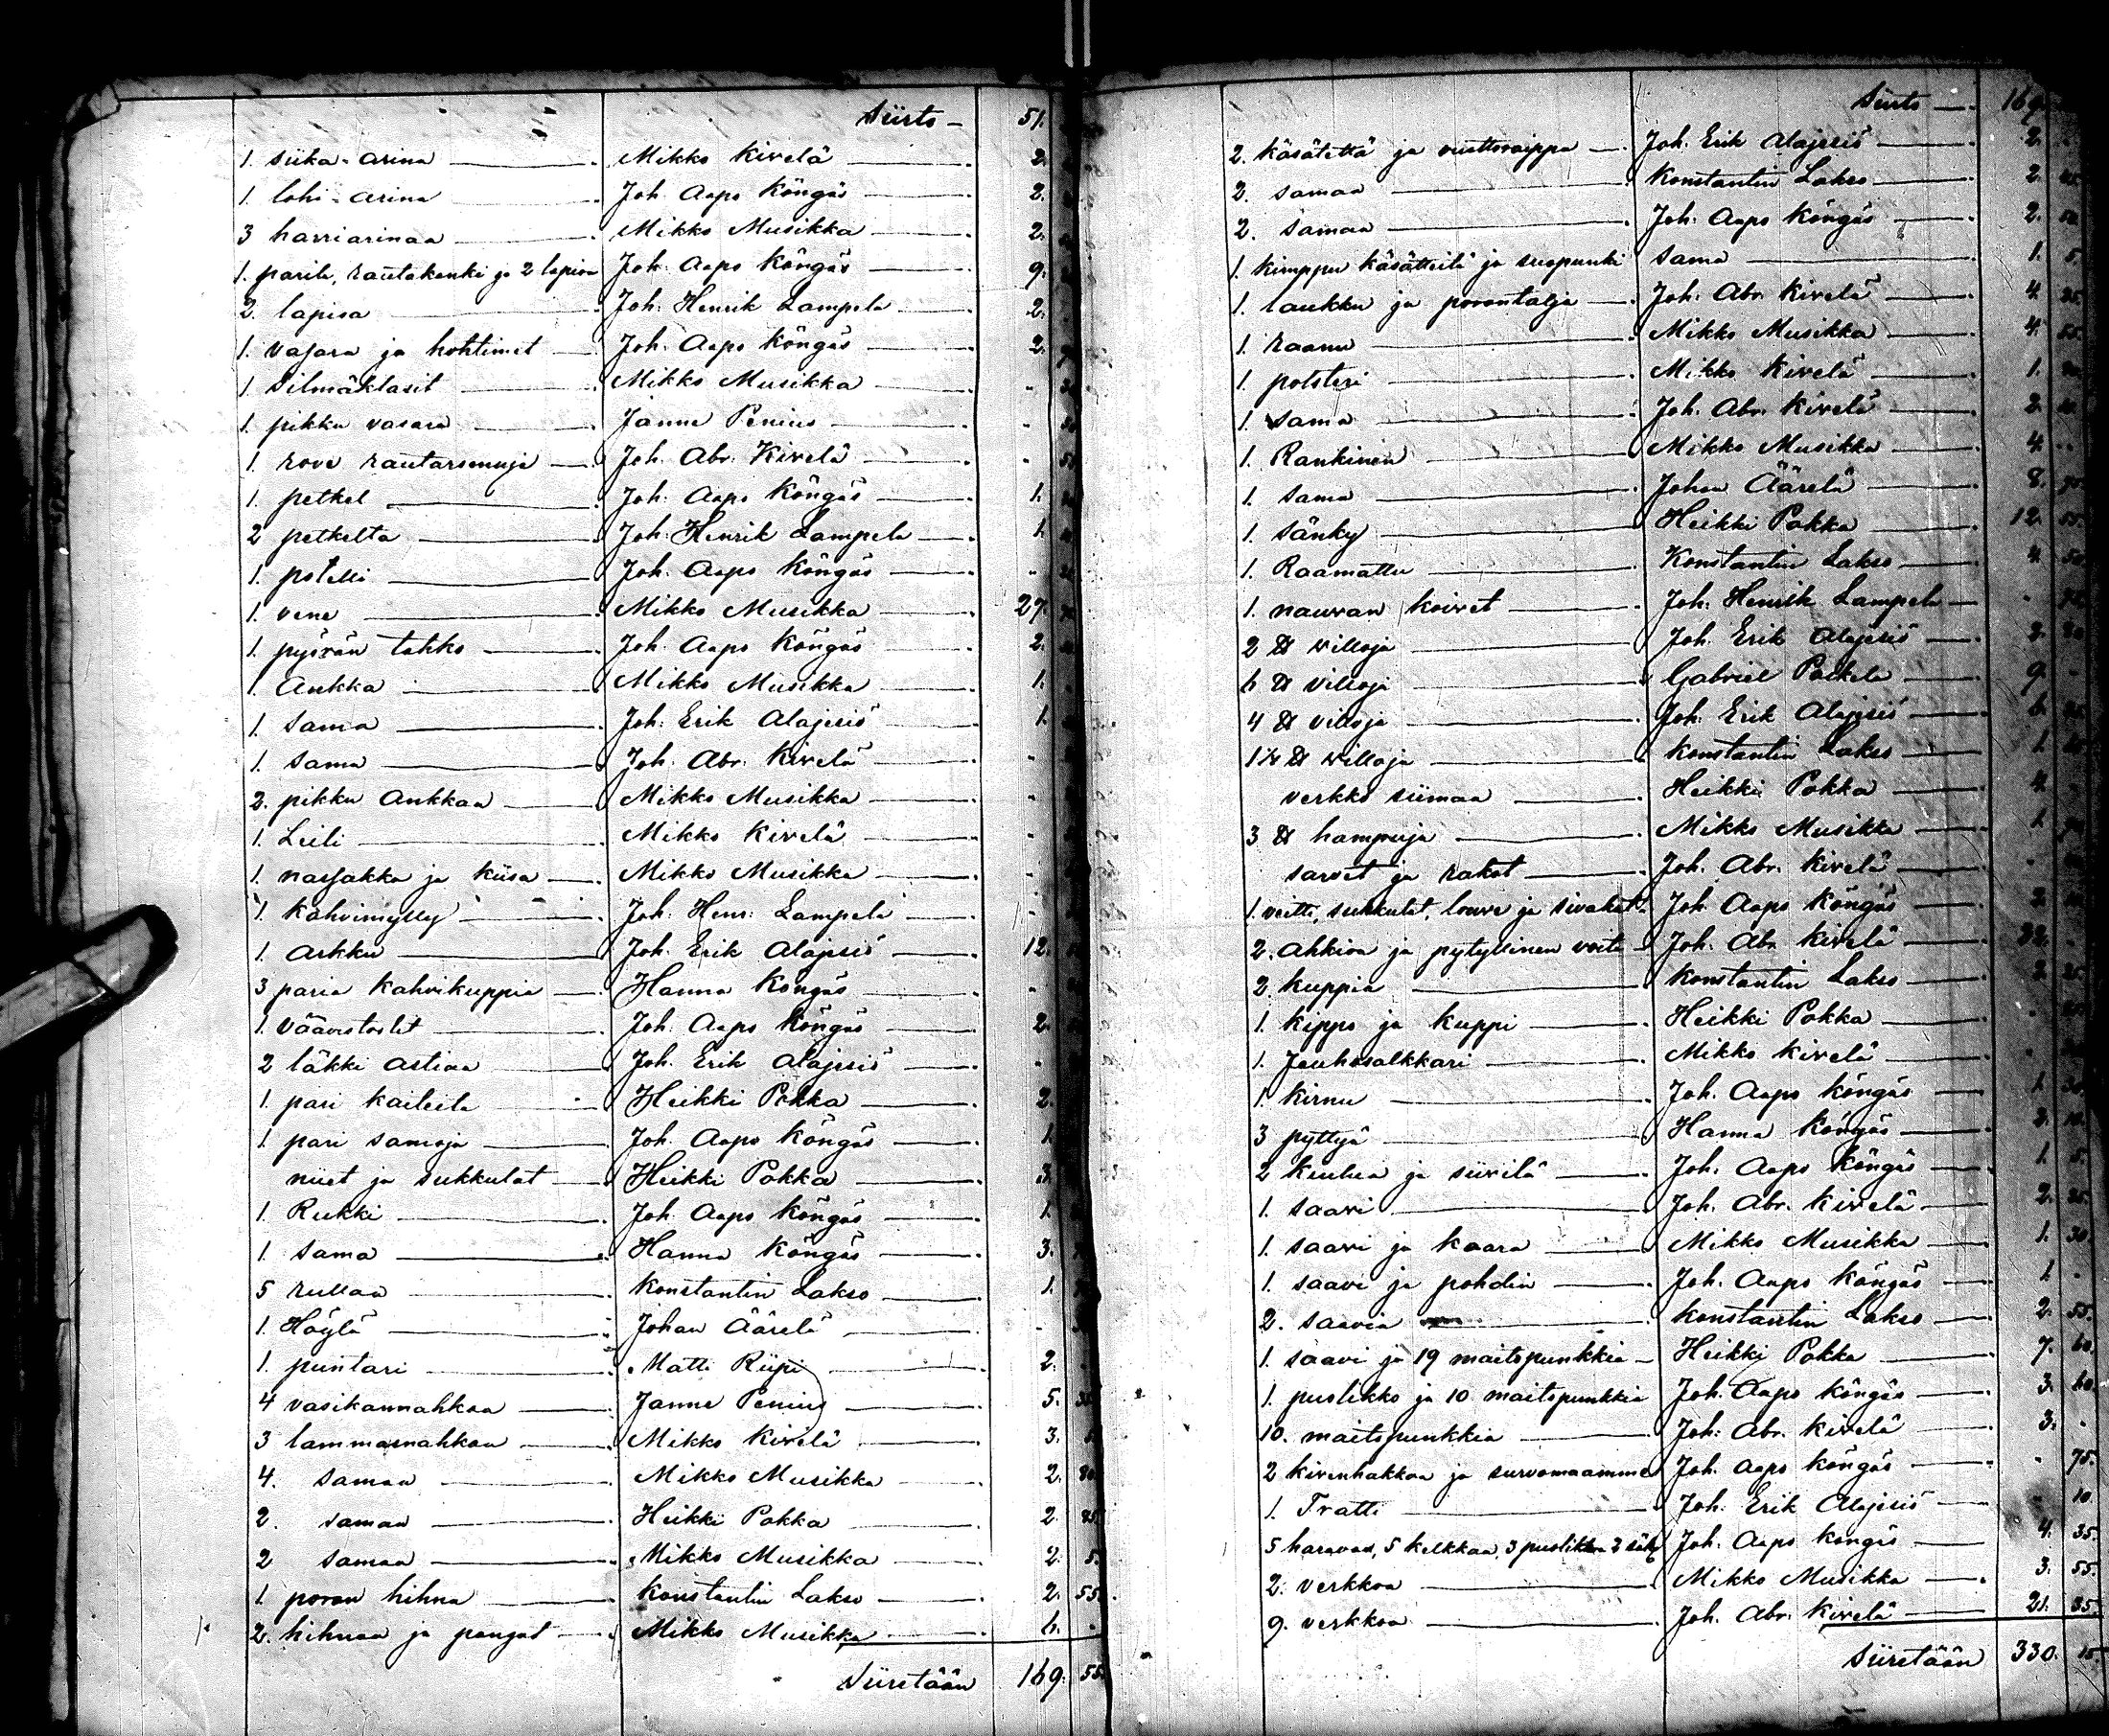 Siirto — 51.
1. siika-arina — Mikko Kivelä — 2.
1. lohi-arina — Joh. Aapo Köngäs — 2.
3 harriarinaa — Mikko Musikka — 2.
1. parila, rautakanki ja 2 lapioa Joh. Aapo Köngäs — 9.
2. lapioa — Joh. Henrik Lampela — 2.
1. vasara ja hohtimet — Joh. Aapo Köngäs — 2.
1 silmäklasit — Mikko Musikka — -
1. pikku vasara — Janne Penius — -
1. rove rautaromuja — Joh. Abr. Kivelä — -
1. petkel — Joh. Aapo Köngäs — 1.
2 petkelta — Joh. Henrik Lampela — 1.
1. potelli — Joh. Aapo Köngäs — -
1. vene — Mikko Musikka — 27.
1. pyörän tahko — Joh. Aapo Köngäs — 2.
1. Ankka — Mikko Musikka — 1.
1. sama — Joh. Erik Alajesiö — 1.
1. sama — Joh. Abr. Kivelä — -
2. pikku Ankkaa — Mikko Musikka — -
1. Leili — Mikko Kivelä — -
1. nassakka ja kiisa — Mikko Musikka — -
1. Kahvimylly — Joh. Henr. Lampela — -
1. Arkku — Joh. Erik Alajesiö — 12.
3 paria kahvikuppia — Hanna Köngäs — -
1. — Joh. Aapo Köngäs — 2.
2 läkki astiaa — Joh. Erik Alajesiö — -
1. pari kaiteita — Heikki Pokka — 2.
1. pari samoja — Joh. Aapo Köngäs — 1.
niiet ja sukkulat — Heikki Pokka — 3.
1. Rukki — Joh. Aapo Köngäs — 1.
1. sama — Hanna Köngäs — 3.
5 rullaa — Konstantin Lakso — 1.
1. Höylä — Johan Äärelä — -
1. puntari — Matti Riipi — 2.
4 vasikannahkaa — Janne Penius — 5.
3 lammasnahkaa — Mikko Kivelä — 3.
4. samaa — Mikko Musikka — 2. 80.
2. samaa — Heikki Pokka — 2 25.
2 samaa — Mikko Musikka — 2. 5.
1. poron hihna — Konstantin Lakso — 2. 55.
2. hihnaa ja pangat — Mikko Musikka — 6. -
Siiretään 169. 55.
Siirto — 169.
2. käsätettä ja — Joh. Erik Alajesiö — 2.
2. samaa — Konstantin Lakso — 2.
2. samaa — Joh. Aapo Köngäs — 2. 50.
1. kimppu käsätteitä ja suopunki sama — 1. 5.
1. laukku ja porontalja — Joh. Abr. Kivelä — 4.
1. raanu — Mikko Musikka — 4. 55.
1. polsteri — Mikko Kivelä — 1.
1. sama — Joh. Abr. Kivelä — 2.
1. Rankinen — Mikko Musikka — 4.
1. sama — Johan Äärelä — 8.
1. sänky — Heikki Pokka — 12. 55.
1. Raamattu — Konstantin Lakso — 4 50.
1. nauvan koivet — Joh. Henrik Lampela — -
2 ℔ villoja — Joh. Erik Alajesiö — 3.
6 ℔ villoja — Gabriel Palkela — 9. -
4 ℔ villoja — Joh. Erik Alajesiö — 6.
1½ ℔ villoja — Konstantin Lakso — 1.
verkko siimaa — Heikki Pokka — 4.
3 ℔ hamppuja — Mikko Musikka — 1.
sarvet ja rahat — Joh. Abr. Kivelä — -
1. veitti, sukkulat, louve ja sivakat Joh. Aapo Köngäs — 2.
2. Ahkioa ja pytyllinen voita — Joh. Abr. Kivelä — 32.
2. kuppia — Konstantin Lakso — 2 25.
1. kippo ja kuppi — Heikki Pokka — -
1. Jauhosalkkari — Mikko Kivelä — -
1. Kirnu — Joh. Aapo Köngäs — 1. 30.
3 pyttyä — Hanna Köngäs — 2. 10.
2 kiulua ja siivilä — Joh. Aapo Köngäs — 1. 5.
1. saavi — Joh. Abr. Kivelä — 2. 25.
1. saavi ja kaara — Mikko Musikka — 1. 30.
1. saavi ja pohdin — Joh. Aapo Köngäs — 1. -
2. saavia — Konstantin Lakso — 2. 55.
1. saavi ja 19 maitopunkkia — Heikki Pokka — 7. 60.
1. puolikko ja 10. maitopunkkia Joh. Aapo Köngäs — 3. 60.
10. maitopunkkia — Joh. Abr. Kivelä — 3. -
2 kirvenhakkoa ja survomaamme Joh. Aapo Köngäs — - 75.
1. Tratti — Joh. Erik Alajesiö — - 10
5 haravaa, 5 kelkkaa, 3 puolikkoa 2 Joh. Aapo Köngäs — 4. 35.
2. verkkoa — Mikko Musikka — 3. 55.
9. verkkoa — Joh. Abr. Kivelä — 21. 35.
Siiretään 330. 15.